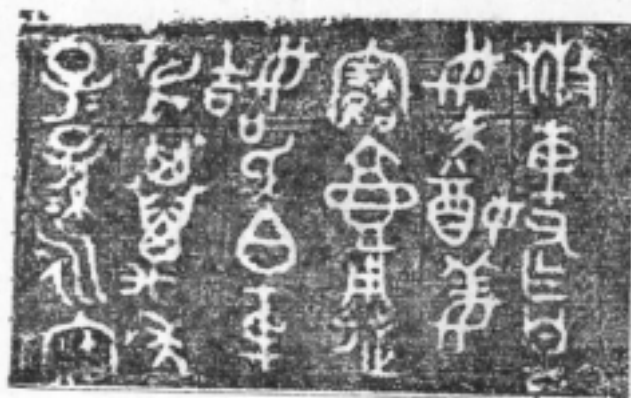 散車父乍皇
母姜
寶壺用逆
姞氏白車
父其萬年
子子孫孫永寶